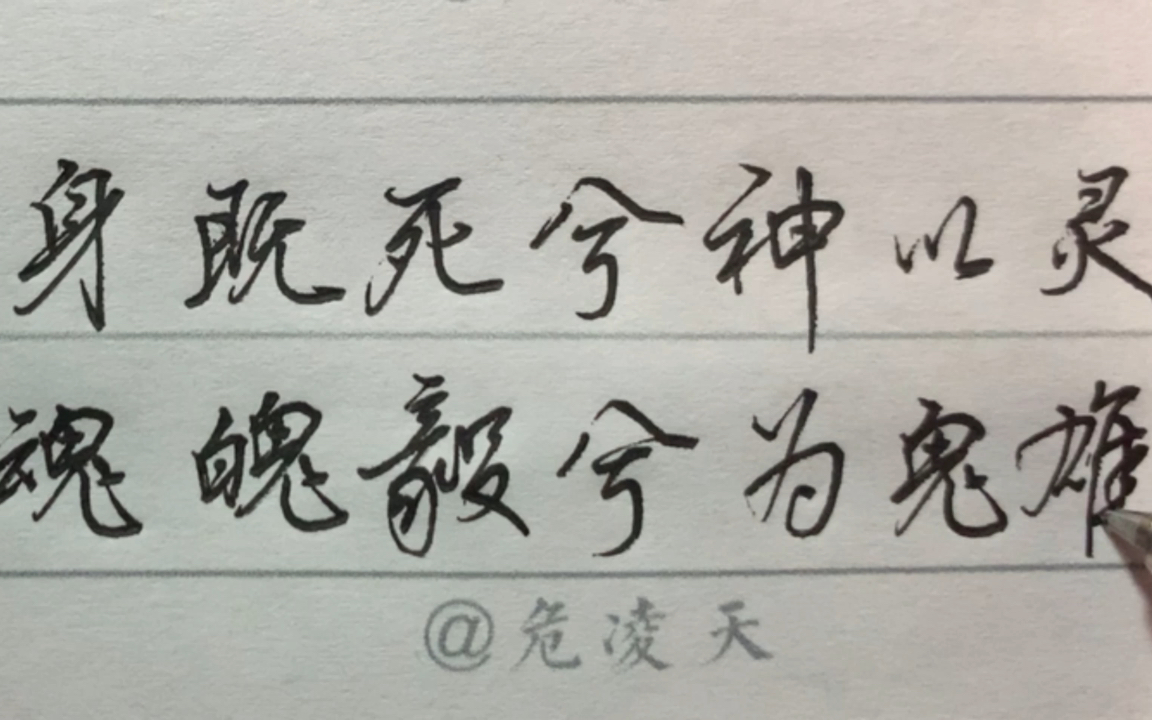 身既死兮神以灵
魂魄毅兮为鬼雄
@危凌天